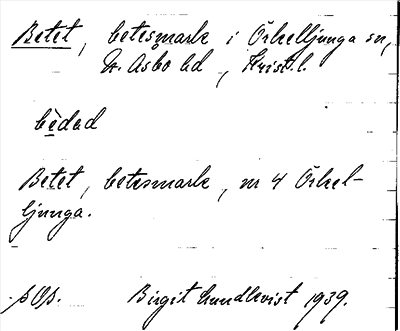 Betet, betesmark i Örkelljunga sn,
N. Åsbo hd, Krist. l.
bèdad
Betet, betesmark, nr 4 Örkel-
ljunga.
Birgit Lundkvist 1939.